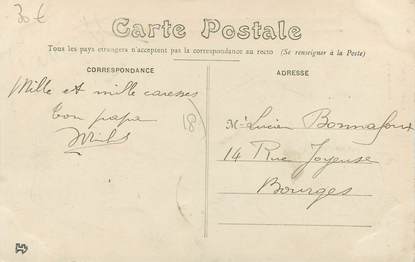 30 €
Carte Postale
Tous les pays étrangers n'acceptent pas la correspondance au recto (Se renseigner à la Poste)
CORRESPONDANCE
Mille et mille caresses
Ton papa
18
ADRESSE
Mr Lucien Bonnafoux
14 Rue Joyeuse
Bourges